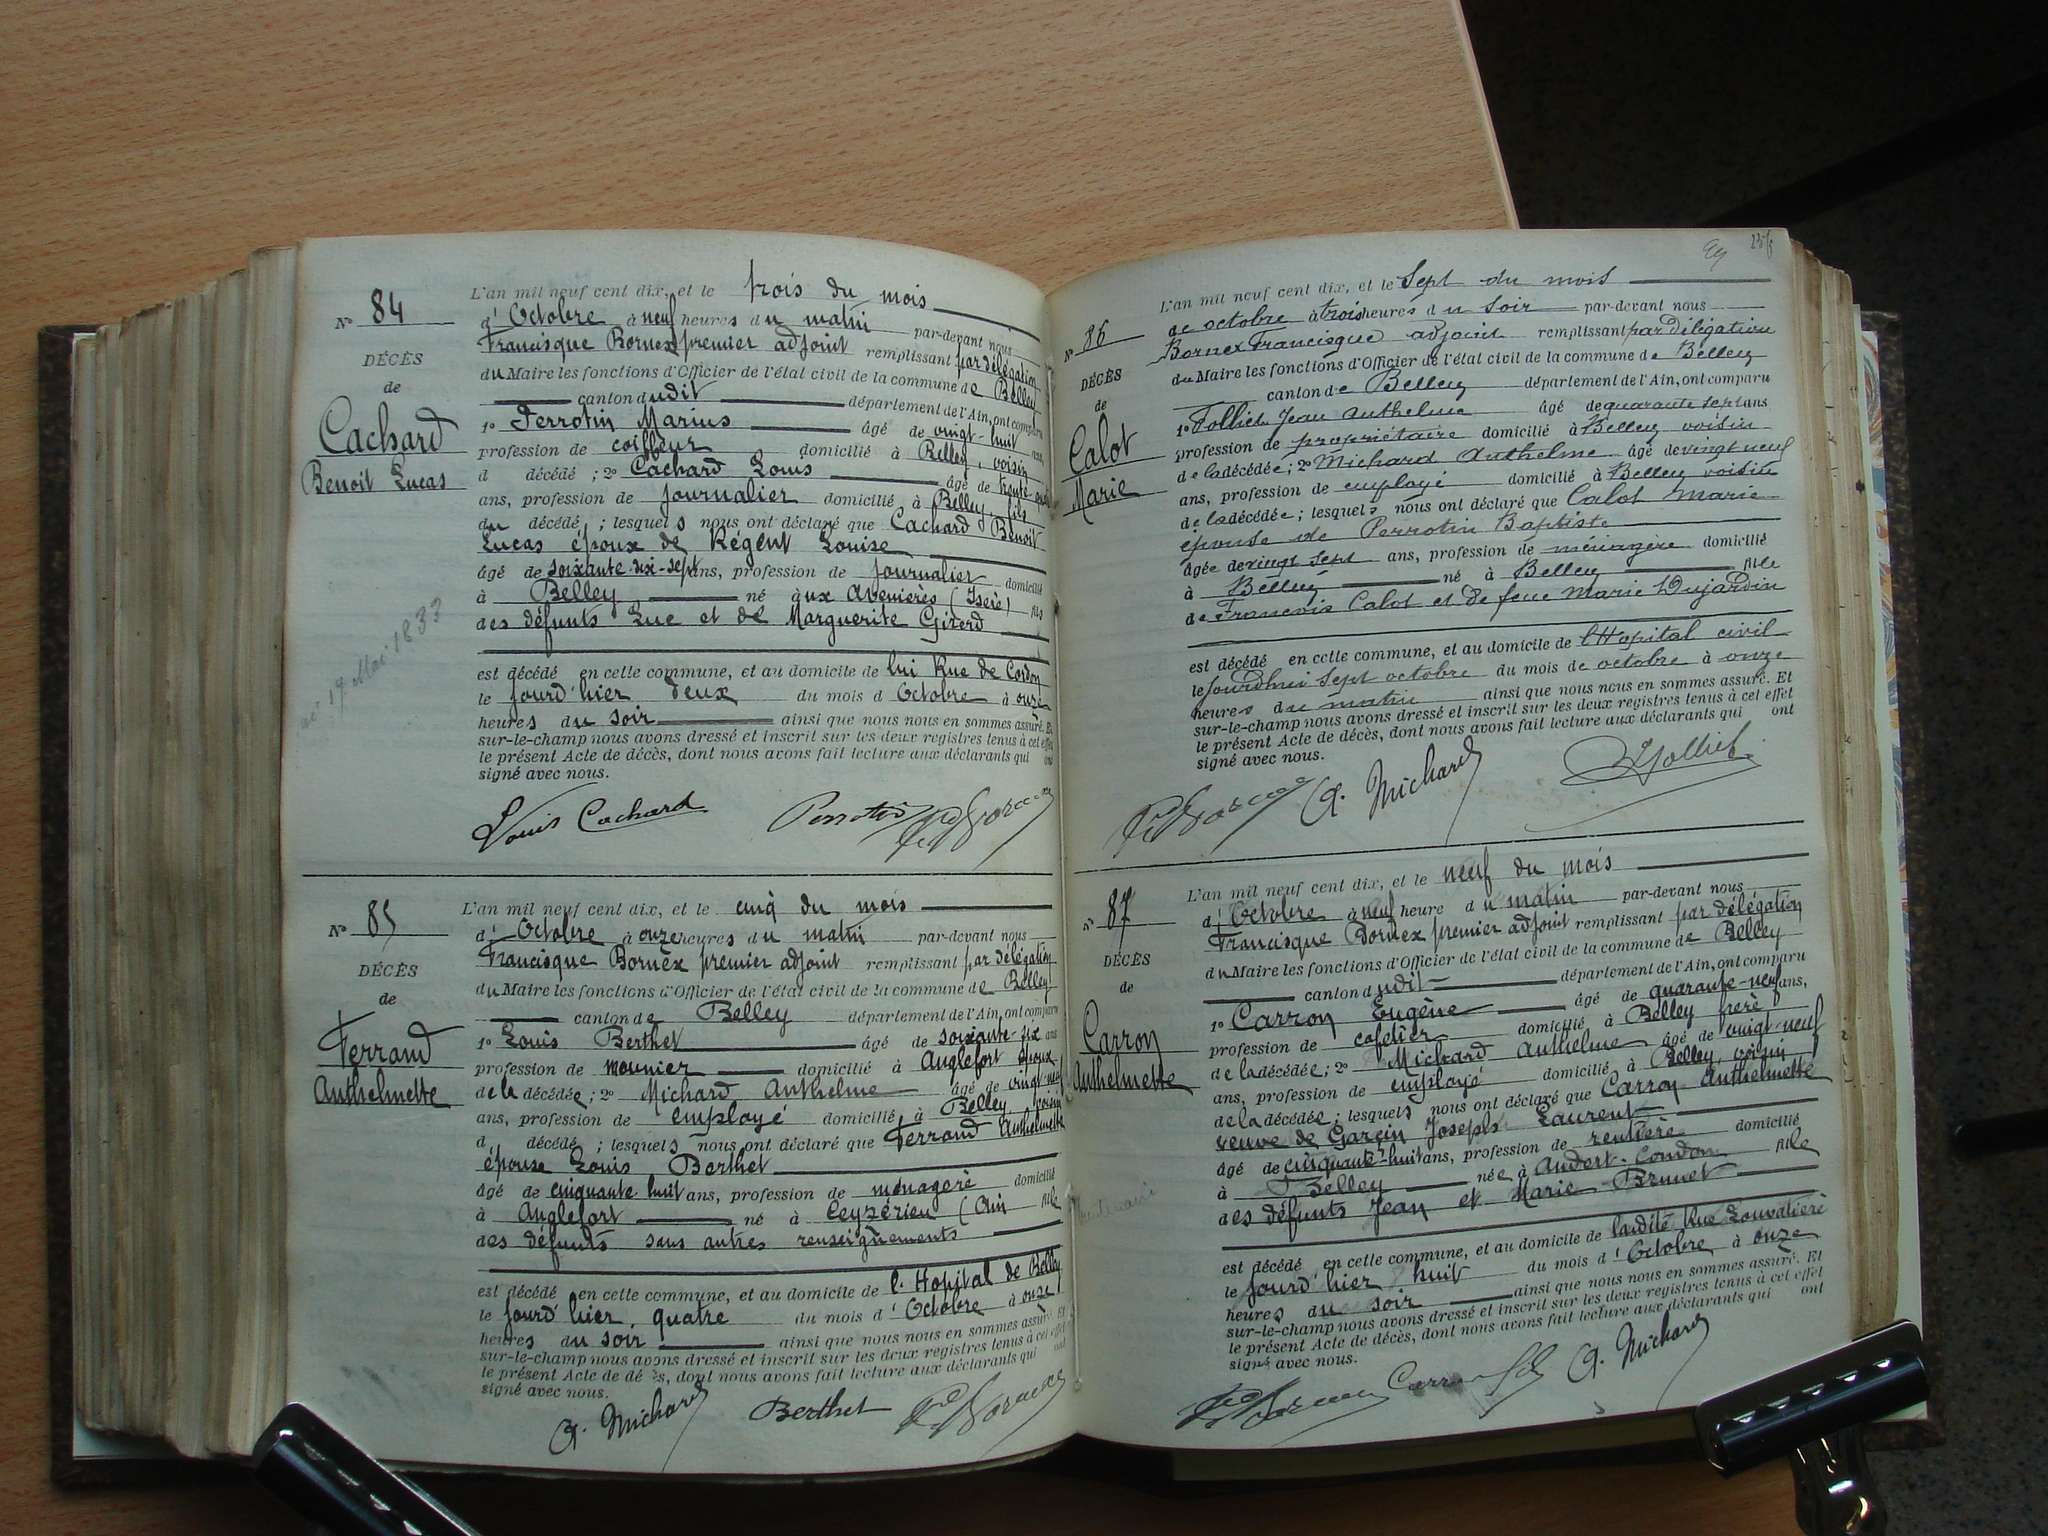 N° 84
DÉCÈS
de
Cachard
Benoit Lucas
né 19 Mai 1833
L'an mil neuf cent dix, et le trois du mois
d'Octobre à neuf heures du matin par-devant nous
Francisque Bornex premier adjoint remplissant par délégation
du Maire les fonctions d'Officier de l'état civil de la commune de Belley
canton dudit département de l'Ain, ont comparu
1° Perrotin Marius âgé de vingt-huit ans,
profession de coiffeur domicilié à Belley, voisin
d décédé ; 2° Cachard Louis âgé de trente
ans, profession de journalier domicilié à Belley, fils
du décédé ; lesquels nous ont déclaré que Cachard Benoit
Lucas époux de Régent Louise
âgé de soixante-dix-sept ans, profession de journalier domicilié
à Belley né aux Avenières (Isère) fils
des défunts Luc et de Marguerite Giterd
est décédé en cette commune, et au domicile de lui Rue de Cordon
le jourd'hier deux du mois d Octobre à onze
heures du soir ainsi que nous nous en sommes assuré. Et
sur-le-champ nous avons dressé et inscrit sur les deux registres tenus à cet effet
le présent Acte de décès, dont nous avons fait lecture aux déclarants qui ont
signé avec nous.
Louis Cachard Perrotin Fque Bornex
N° 85
DÉCÈS
de
Ferrand
Anthelmette
L'an mil neuf cent dix, et le cinq du mois
d'Octobre à onze heures du matin par-devant nous
Francisque Bornex premier adjoint remplissant par délégation
du Maire les fonctions d'Officier de l'état civil de la commune de Belley
canton de Belley département de l'Ain, ont comparu
1° Louis Berthet âgé de soixante-six ans
profession de meunier domicilié à Anglefort époux
de la décédée ; 2° Michard Anthelme âgé de vingt-neuf
ans, profession de employé domicilié à Belley, voisin
d décédé ; lesquels nous ont déclaré que Ferrand Anthelmette
épouse Louis Berthet
âgé de cinquante huit ans, profession de ménagère domicilié
à Anglefort né à Ceyzérieu (Ain fille
des défunts sans autres renseignements
est décédé en cette commune, et au domicile de l'Hopital de Belley
le jourd'hier, quatre du mois d'Octobre à onze
heures du soir ainsi que nous nous en sommes assuré. Et
sur-le-champ nous avons dressé et inscrit sur les deux registres tenus à cet effet
le présent Acte de décès, dont nous avons fait lecture aux déclarants qui ont
signé avec nous.
A. Michard Berthet Fque Bornex
N° 86
DÉCÈS
de
Calot
Marie
L'an mil neuf cent dix, et le Sept du mois
de octobre à trois heures du soir par-devant nous
Bornex Francisque adjoint remplissant par délégation
du Maire les fonctions d'Officier de l'état civil de la commune de Belley
canton de Belley département de l'Ain, ont comparu
1° Jollict Jean Anthelme âgé de quarante sept ans
profession de propriétaire domicilié à Belley voisin
de la décédée ; 2° Michard Anthelme âgé de vingt neuf
ans, profession de employé domicilié à Belley voisin
de la décédée ; lesquels nous ont déclaré que Calot Marie
épouse de Perrotin Baptiste
âgée de vingt sept ans, profession de ménagère domicilié
à Belley né à Belley fille
de François Calot et de feue Marie Dujardin
est décédé en cette commune, et au domicile de l'Hopital civil
le jourdhui Sept octobre du mois de octobre à onze
heures du matin ainsi que nous nous en sommes assuré. Et
sur-le-champ nous avons dressé et inscrit sur les deux registres tenus à cet effet
le présent Acte de décès, dont nous avons fait lecture aux déclarants qui ont
signé avec nous.
Fque Bornex A. Michard
N° 87
DÉCÈS
de
Carron
Anthelmette
L'an mil neuf cent dix, et le neuf du mois
d'Octobre à neuf heure du matin par-devant nous
Francisque Bornex premier adjoint remplissant par délégation
du Maire les fonctions d'Officier de l'état civil de la commune de Belley
canton dudit département de l'Ain, ont comparu
1° Carron Eugène âgé de quarante-neuf ans,
profession de cafetier domicilié à Belley frère
de la décédée ; 2° Michard Anthelme âgé de vingt-neuf
ans, profession de employé domicilié à Belley, voisin
de la décédée ; lesquels nous ont déclaré que Carron Anthelmette
veuve de Garçin Joseph Laurent
âgé de cinquante-huit ans, profession de rentière domicilié
à Belley née à Andert-Condon fille
des défunts Jean et Marie Brunet
est décédé en cette commune, et au domicile de ladite Rue Louvatière
le jourd'hier huit du mois d'Octobre à onze
heures du soir ainsi que nous nous en sommes assuré. Et
sur-le-champ nous avons dressé et inscrit sur les deux registres tenus à cet effet
le présent Acte de décès, dont nous avons fait lecture aux déclarants qui ont
signé avec nous.
Fque Bornex Carron A. Michard